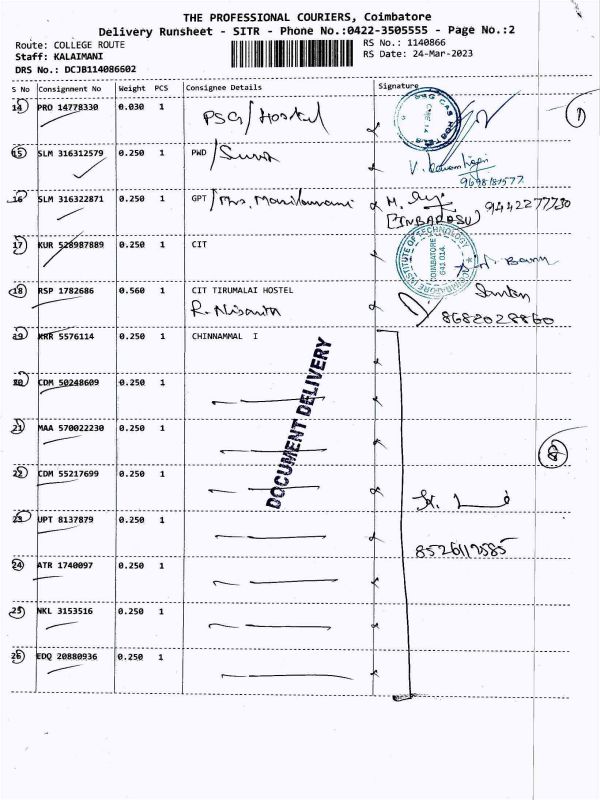 THE PROFESSIONAL COURIERS, Coimbatore
Delivery Runsheet - SITR - Phone No.:0422-3505555 - Page No.:2
Route: COLLEGE ROUTE
RS No.: 1140866
Staff: KALAIMANI
RS Date: 24-Mar-2023
DRS No.: DCJB114086602
S No Consignment No Weight PCS Consignee Details Signature
14 PRO 14778330 0.030 1 PSG/Hostel
15 SLM 316312579 0.250 1 PWD
9698181577
16 SLM 316322871 0.250 1 GPT /Mrs. 9442277730
[INBARASU]
17 KUR 528987889 0.250 1 CIT
INSTITUTE OF TECHNOLOGY
COIMBATORE
641 014
18 RSP 1782686 0.560 1 CIT TIRUMALAI HOSTEL
R. 8682028860
19 KRR 5576114 0.250 1 CHINNAMMAL I
20 CDM 50248609 0.250 1
DOCUMENT DELIVERY
21 MAA 570022230 0.250 1
22 CDM 55217699 0.250 1
23 UPT 8137879 0.250 1
8526117585
24 ATR 1740097 0.250 1
25 NKL 3153516 0.250 1
26 EDQ 20880936 0.250 1